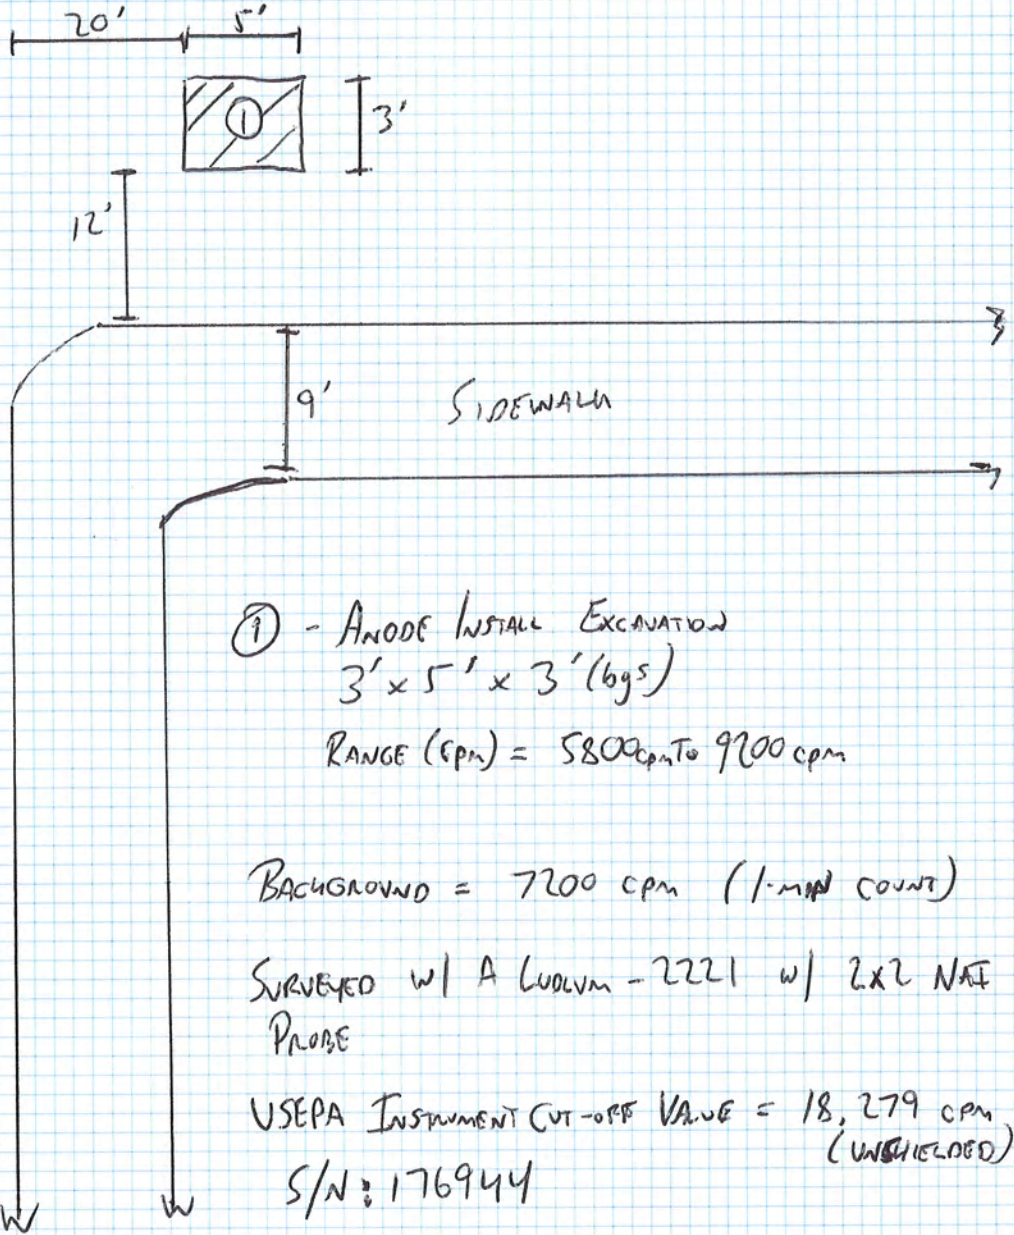 20' 5'
① 3'
12'
9' SIDEWALK
① - ANODE INSTALL EXCAVATION
3' x 5' x 3' (bgs)
RANGE (cpm) = 5800cpm To 9200 cpm
BACKGROUND = 7200 cpm (1-MIN COUNT)
SURVEYED W/ A LUDLUM - 2221 W/ 2x2 NAI
PROBE
USEPA INSTRUMENT CUT-OFF VALUE = 18,279 cpm
(UNSHIELDED)
S/N: 176944